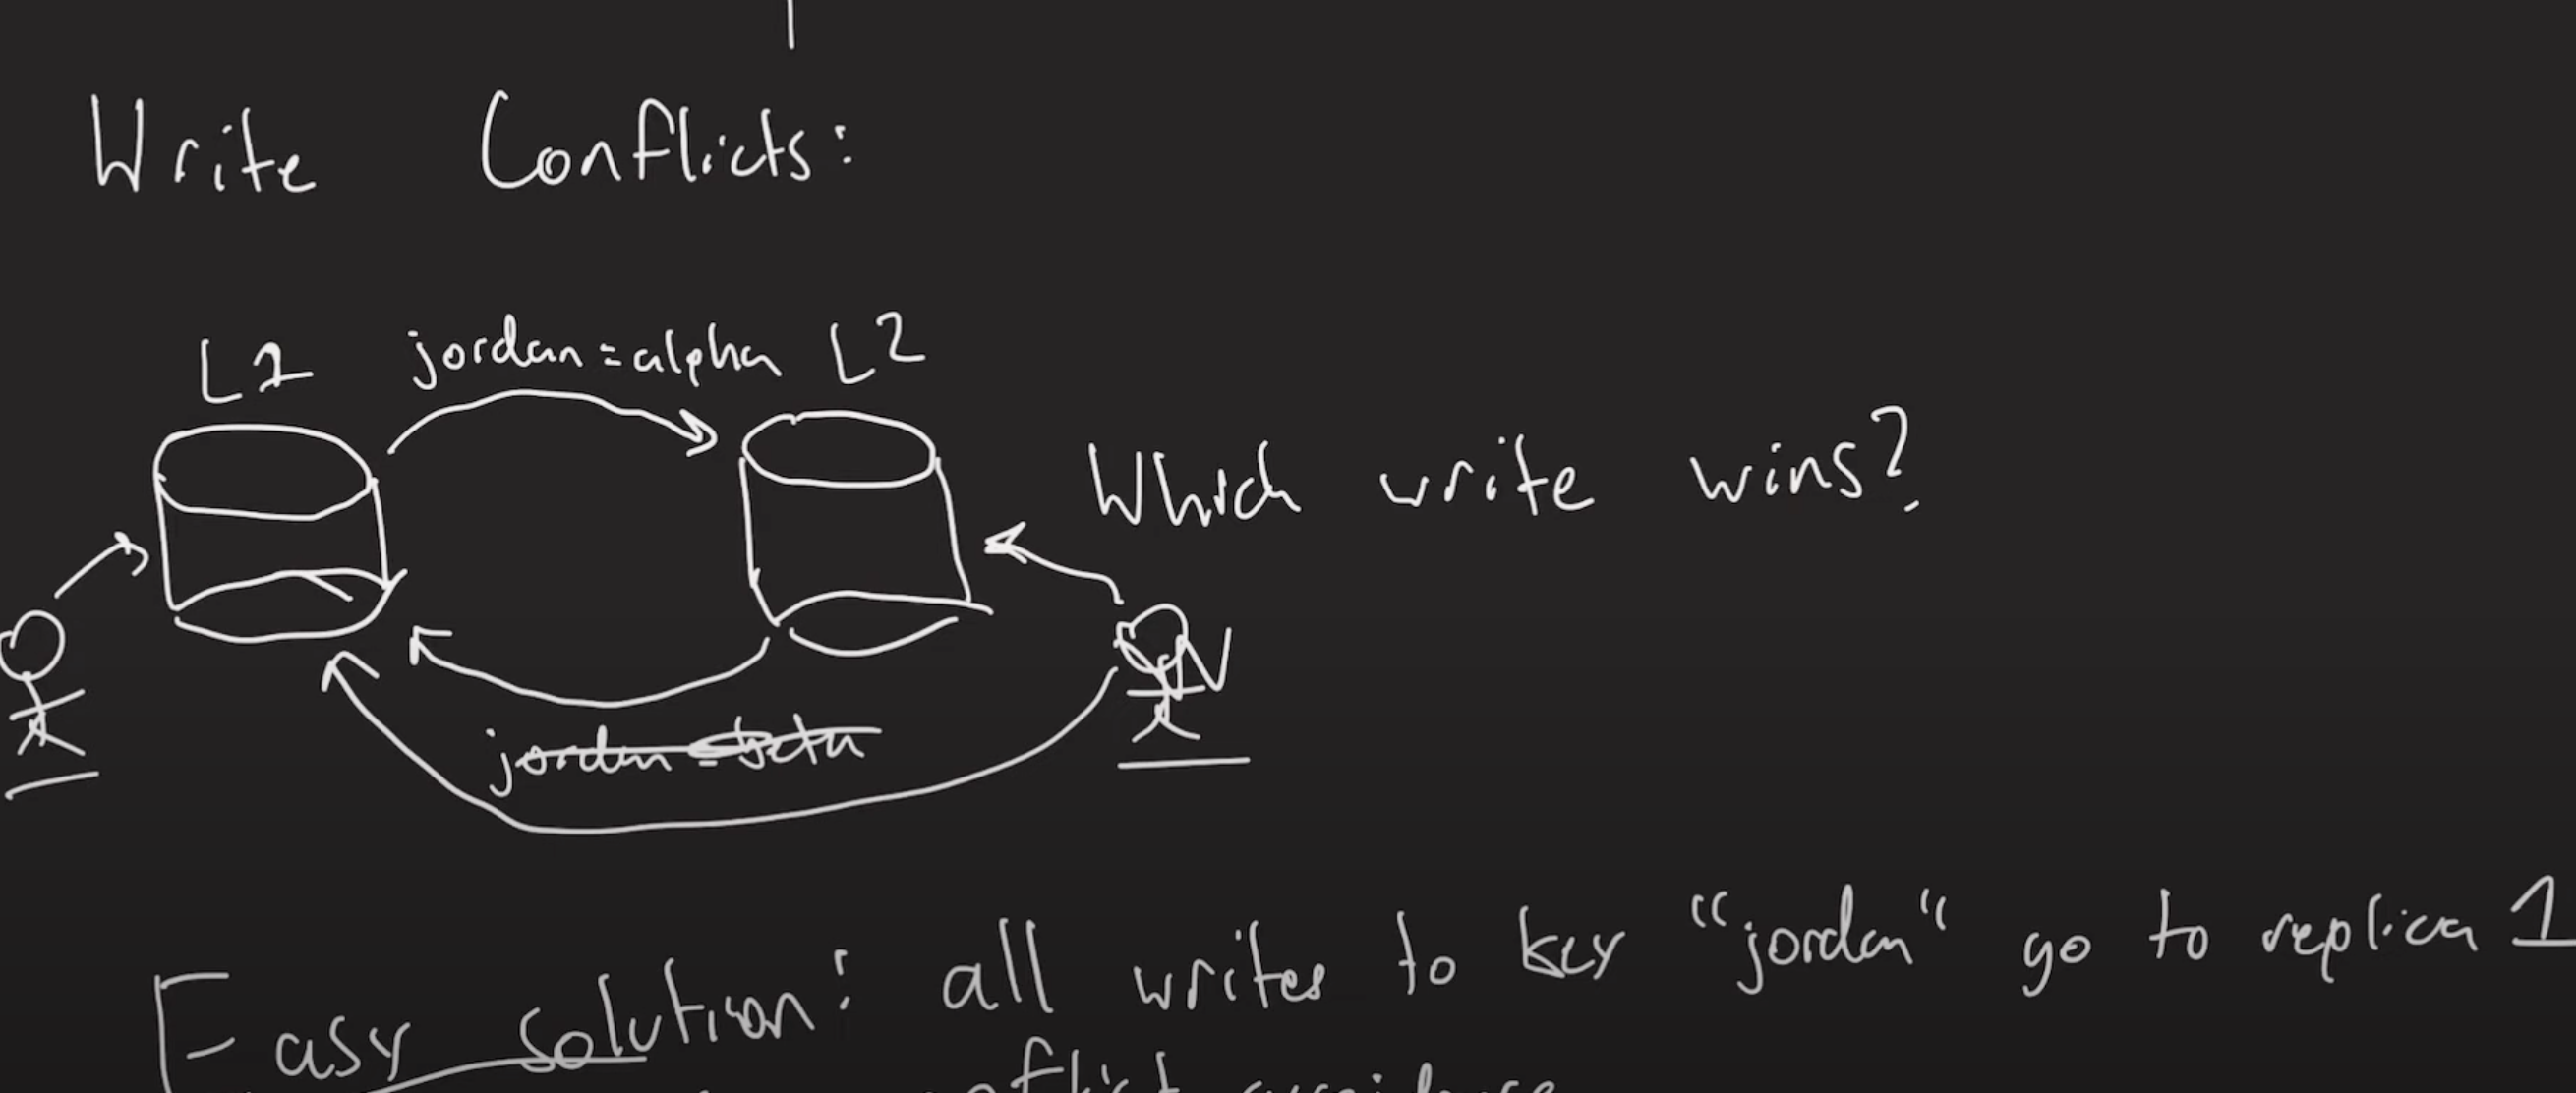 Write Conflicts:
L1 jordan = alpha L2
Which write wins?
jordan = beta
Easy solution: all writes to key "jordan" go to replica 1
conflict avoidance